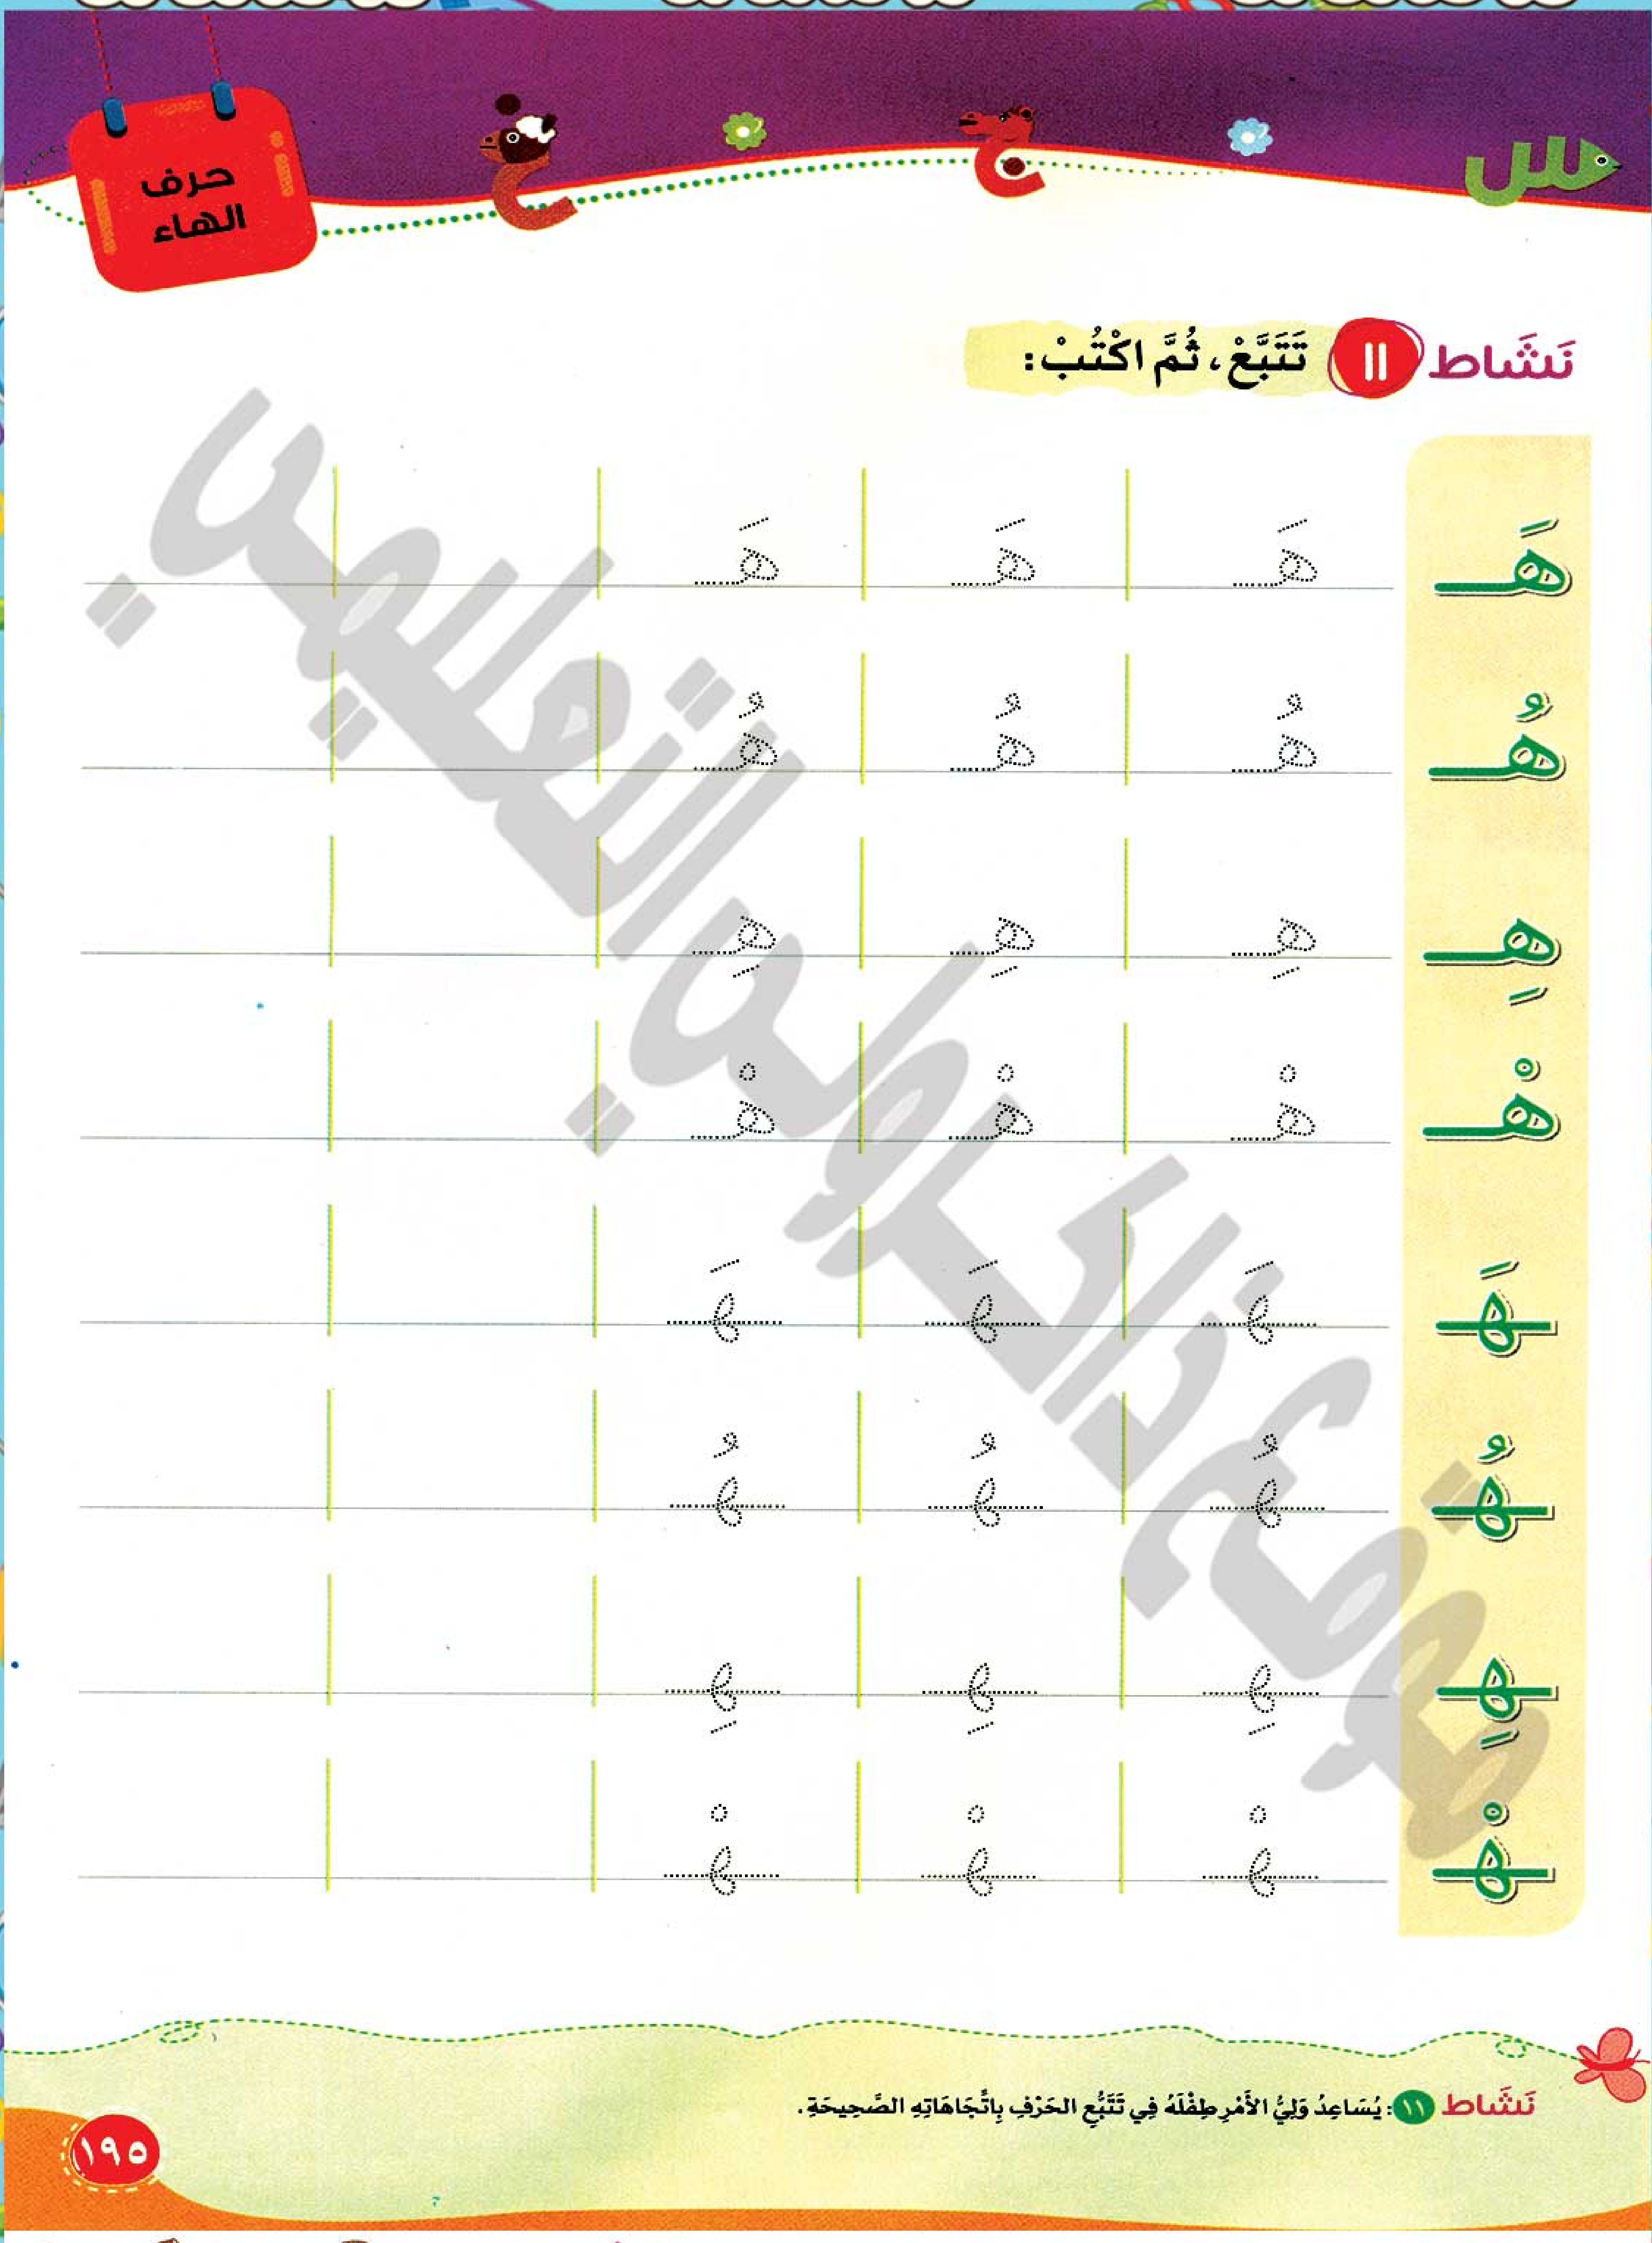 حرف
الهاء
نَشَاط ١١ تَتَبَّعْ، ثُمَّ اكْتُبْ:
هَـ هَـ هَـ هَـ
هُـ هُـ هُـ هُـ
هِـ هِـ هِـ هِـ
هْـ هْـ هْـ هْـ
ـهَـ ـهَـ ـهَـ ـهَـ
ـهُـ ـهُـ ـهُـ ـهُـ
ـهِـ ـهِـ ـهِـ ـهِـ
ـهْـ ـهْـ ـهْـ ـهْـ
موقع ذاكرولي التعليمي
نَشَاط ١١: يُسَاعِدُ وَلِيُّ الأَمْرِ طِفْلَهُ فِي تَتَبُّعِ الحَرْفِ بِاتِّجَاهَاتِهِ الصَّحِيحَةِ.
١٩٥